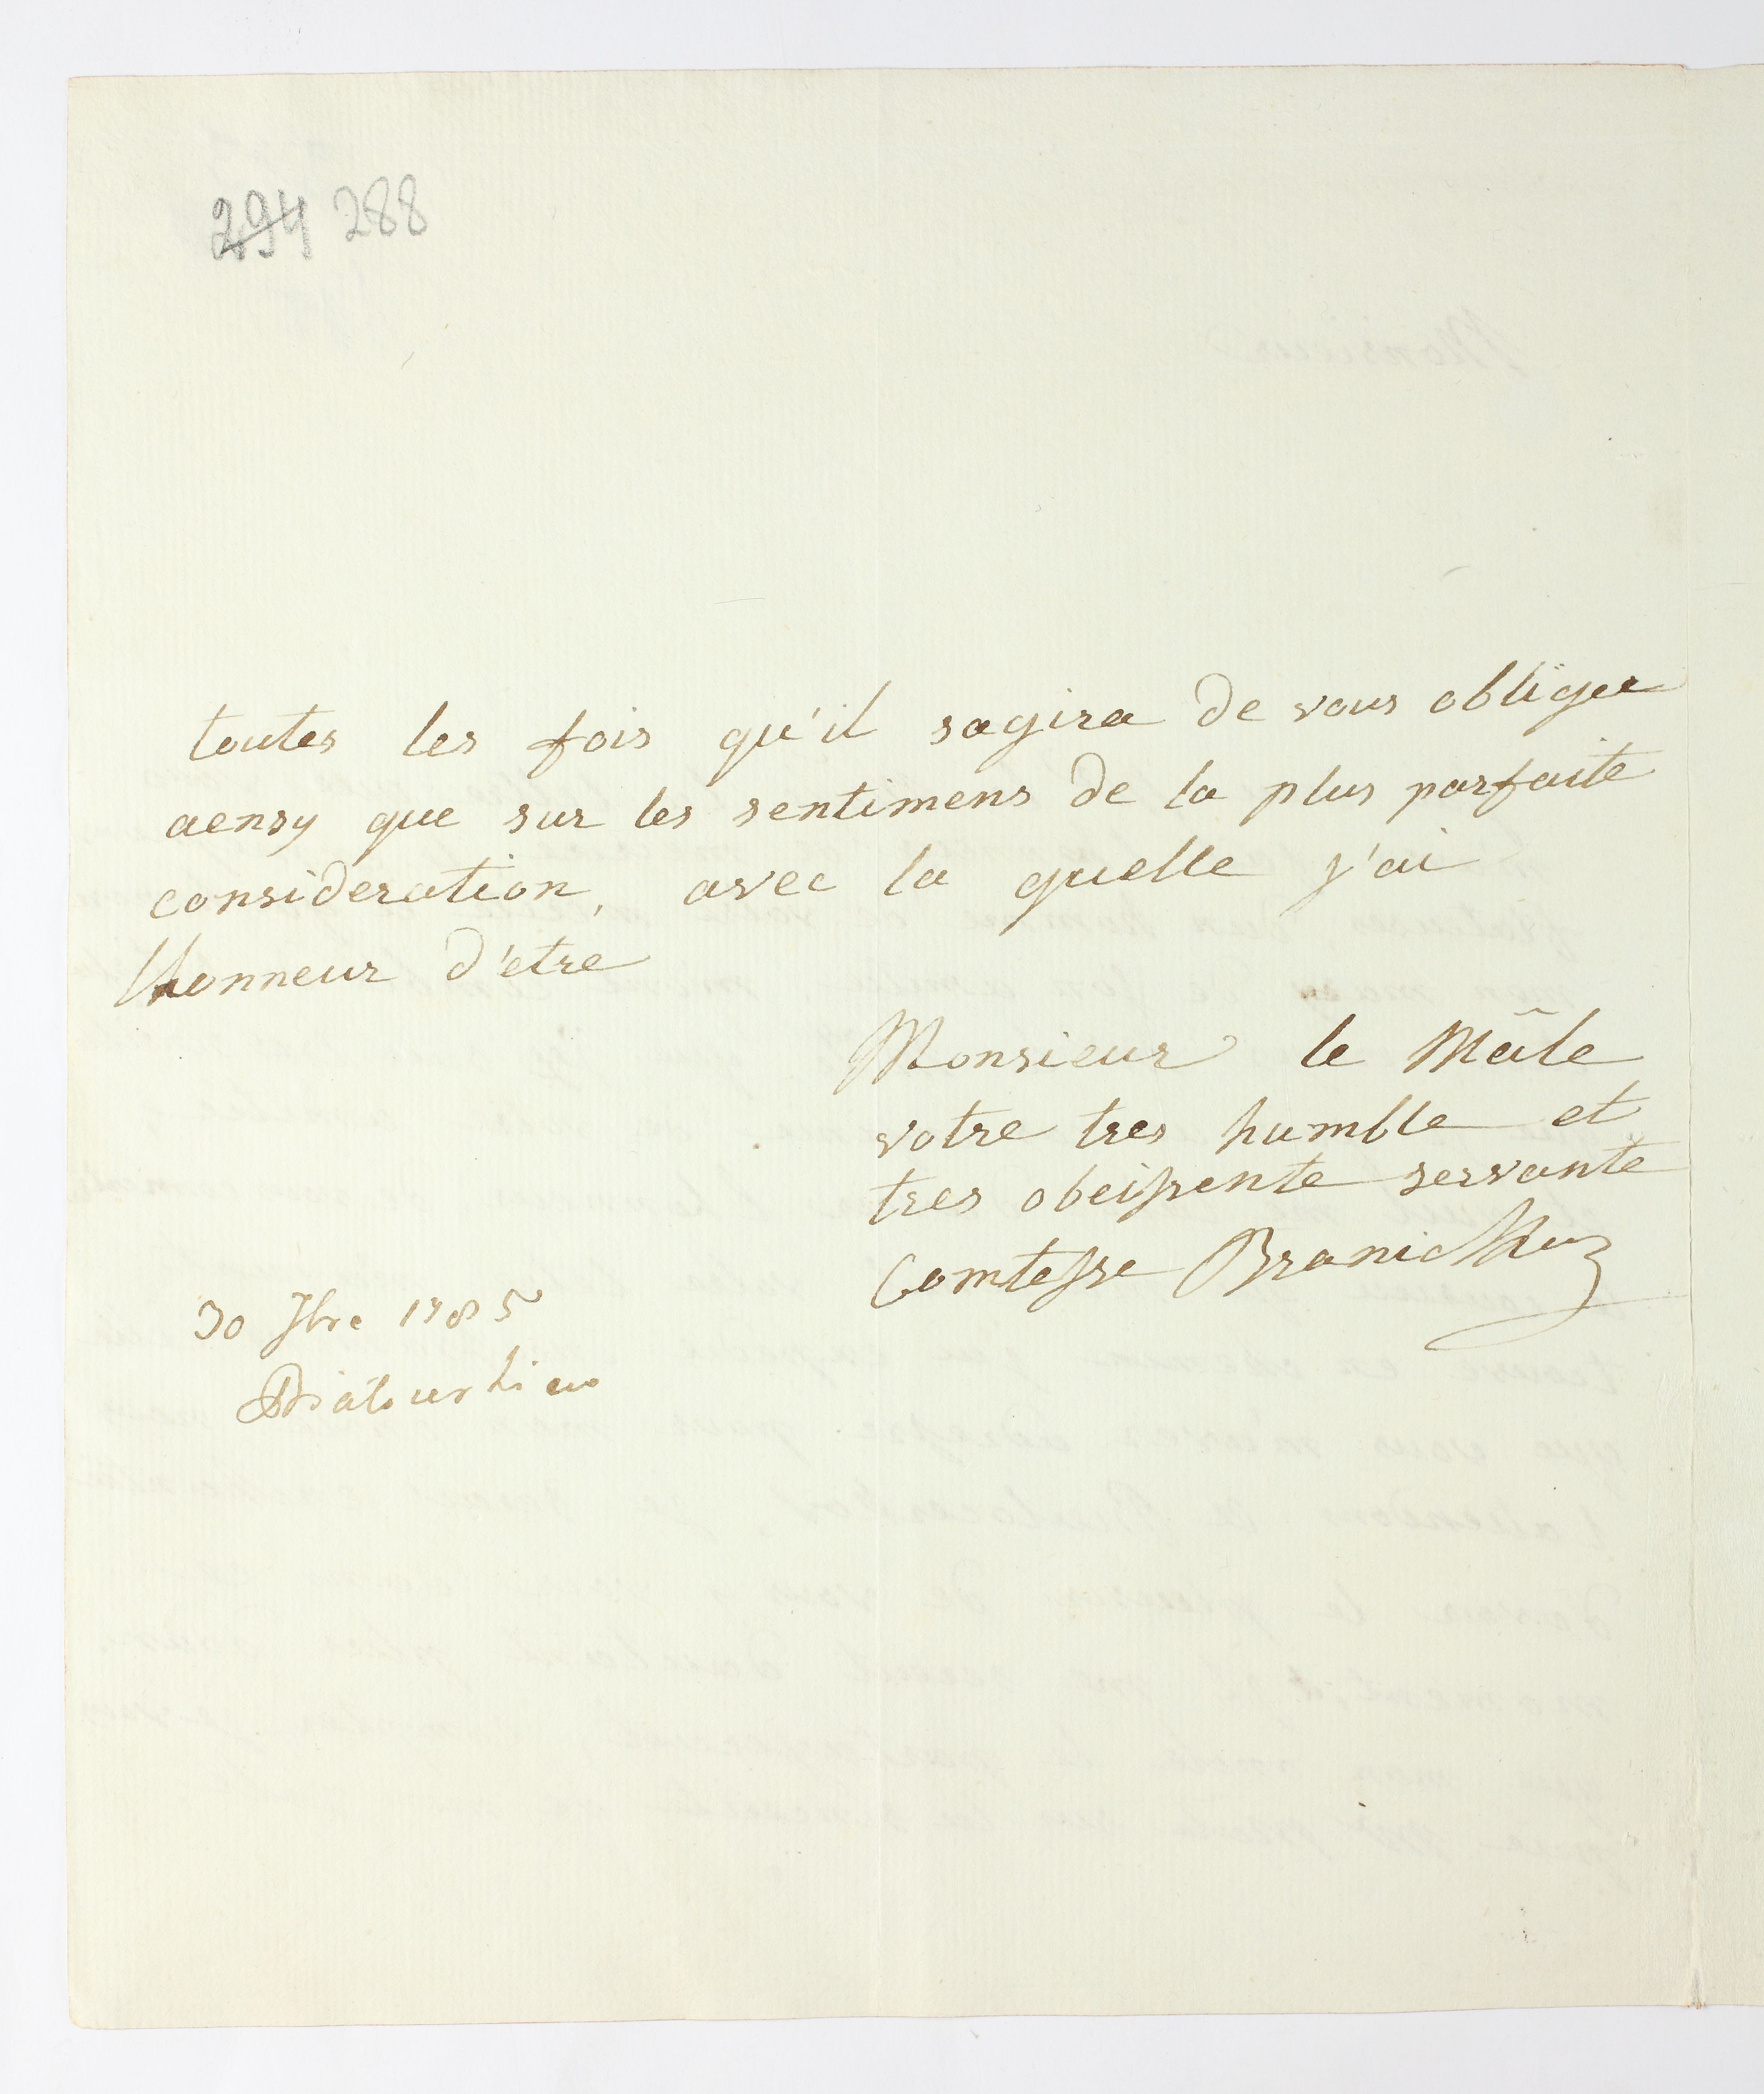 294 288
toutes les fois qu'il sagira de vous obliger
aensy que sur les sentimens de la plus parfaite
consideration, avec la quelle j'ai
lhonneur d'etre
Monsieur le Mâle
votre tres humble et
tres obeissente servante
Comtesse Branicka
30 7bre 1785